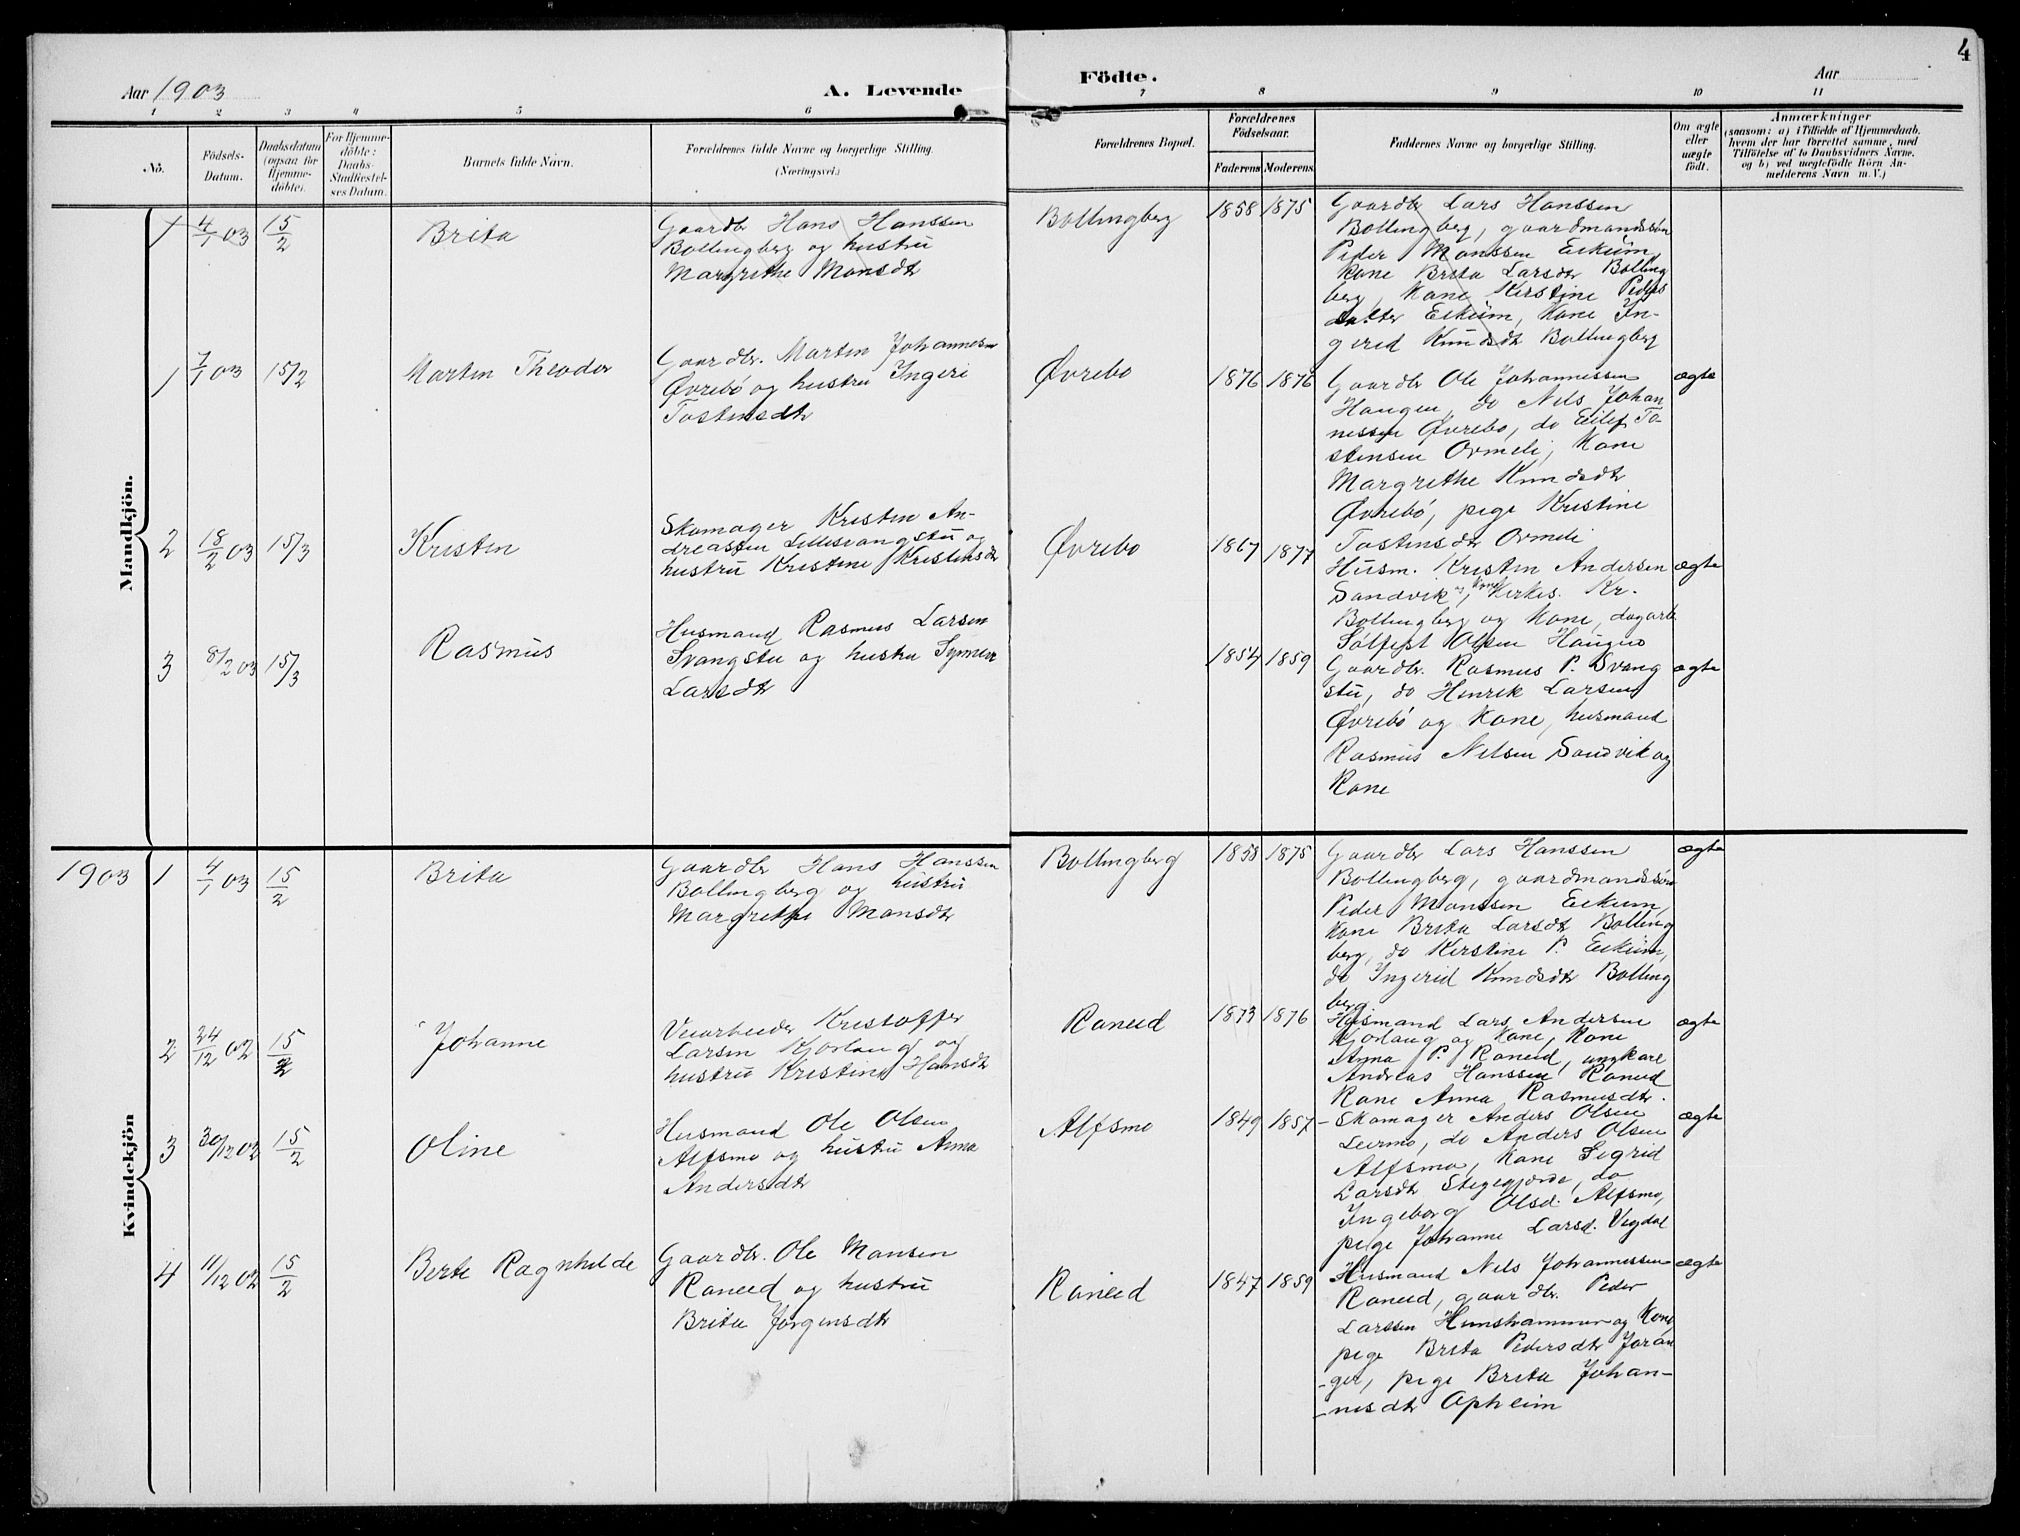 4
Aar 1903
A. Levende
Födte.
Aar
1 2 3 4 5 6 7 8 9 10 11
No.
Födsels-
Datum.
Daabsdatum
(ogsaa for
Hjemme-
döbte).
For Hjemme-
döbte:
Daabs-
Stadfæstel-
ses Datum.
Barnets fulde Navn.
Forældrenes fulde Navne og borgerlige Stilling.
(Næringsvei.)
Forældrenes Bopæl.
Forældrenes
Födselsaar.
Faderens Moderens
Faddernes Navne og borgerlige Stilling.
Om ægte
eller
uægte
födt.
Anmærkninger
(saasom: a) i Tilfælde af Hjemmedaab,
hvem der har forrettet samme, med
Tilföielse af to Daabsvidners Navne,
og b) ved uægtefödte Börn An-
melderens Navn m. V.)
Mandkjön.
1 4/1 03 15/2 Brita
Gaardbr Hans Hanssen
Bollingberg og hustru
Margrethe Monsdtr
Bollingberg 1858 1875
Gaardbr Lars Hanssen
Bollingberg, gaardmandssøn
Peder Monssen Eikum,
Kone Brita Larsdtr Bolling
berg, Kone Kirstine Peders
datter Eikum, Kone In-
gerid Knudsdt Bollingberg
1 7/1 03 15/2 Martin Theodor
Gaardbr. Martin Johannesen
Øvrebö og hustru Ingeri
Tostensdtr
Øvrebo 1876 1876
Gaardbr Ole Johannessen
Haugen, do Nels Johan
nessen Øvrebo, do Eilef To-
stensen Ormeli, Kone
Margrethe Knudsdtr
Øvrebö, pige Kristine
Tostensdtr Ormeli
ægte
2 18/2 03 15/3 Kristen
Skomager Kristen An-
dreassen Lillesvangstu og
hustru Kristine Kristensdtr
Øvrebo 1867 1877
Husm. Kristen Andersen
Sandvik og Kone, Kirkes. Kr.
Bollingberg og Kone, dagarb.
Sølfest Olsen Haugen
ægte
3 8/2 03 15/3 Rasmus
Husmand Rasmus Larsen
Svangstu og hustru Synneve
Larsdtr
1854 1859
Gaardbr. Rasmus P. Svang
stu, do Henrik Larsen
Øvrebö og Kone, husmand
Rasmus Nelsen Sandvik og
Kone
ægte
Kvindekjön
1903 1 4/1 03 15/2 Brita
Gaardbr Hans Hanssen
Bollingberg og hustru
Margrethe Monsdtr
Bollingberg 1858 1875
Gaardbr Lars Hanssen
Bollingberg, gaardmandssøn
Peder Monssen Eikum,
Kone Brita Larsdt Bolling
berg, do Kerstine P. Eikum,
do Ingerid Knudsdt Bolling
berg
ægte
2 24/12 02 15/2 Johanne
Veiarbeider Kristoffer
Larsen Kjorlaug og
hustru Kristine Hansdtr
Raneid 1873 1876
Husmand Lars Andersen
Kjorlaug og Kone, Kone
Anna P. Raneid, ungkarl
Andreas Hanssen Raneid
Kone Anna Rasmusdtr.
ægte
3 30/12 02 15/2 Oline
Husmand Ole Olsen
Alfsmo og hustru Anna
Andersdtr
Alfsmo 1849 1857
– Skomager Anders Olsen
Leirmo, do Anders Olsen
Alfsmo, Kone Sigrid
Larsdt Stegegjerde, do
Ingeborg Olsd. Alfsmo,
pige Johanne Larsd. Vigdal
ægte
4 11/12 02 15/2 Berte Ragnhilde
Gaardbr. Ole Monsen
Raneid og hustru
Brita Jørgensdtr
Raneid 1847 1859
Husmand Nels Johannessen
Raneid, gaardbr. Peder
Larssen Hunshammer og Kone
pige Brita Pedersdtr Joran
-ger, pige Brita Johan-
-nesdtr Opheim
ægte